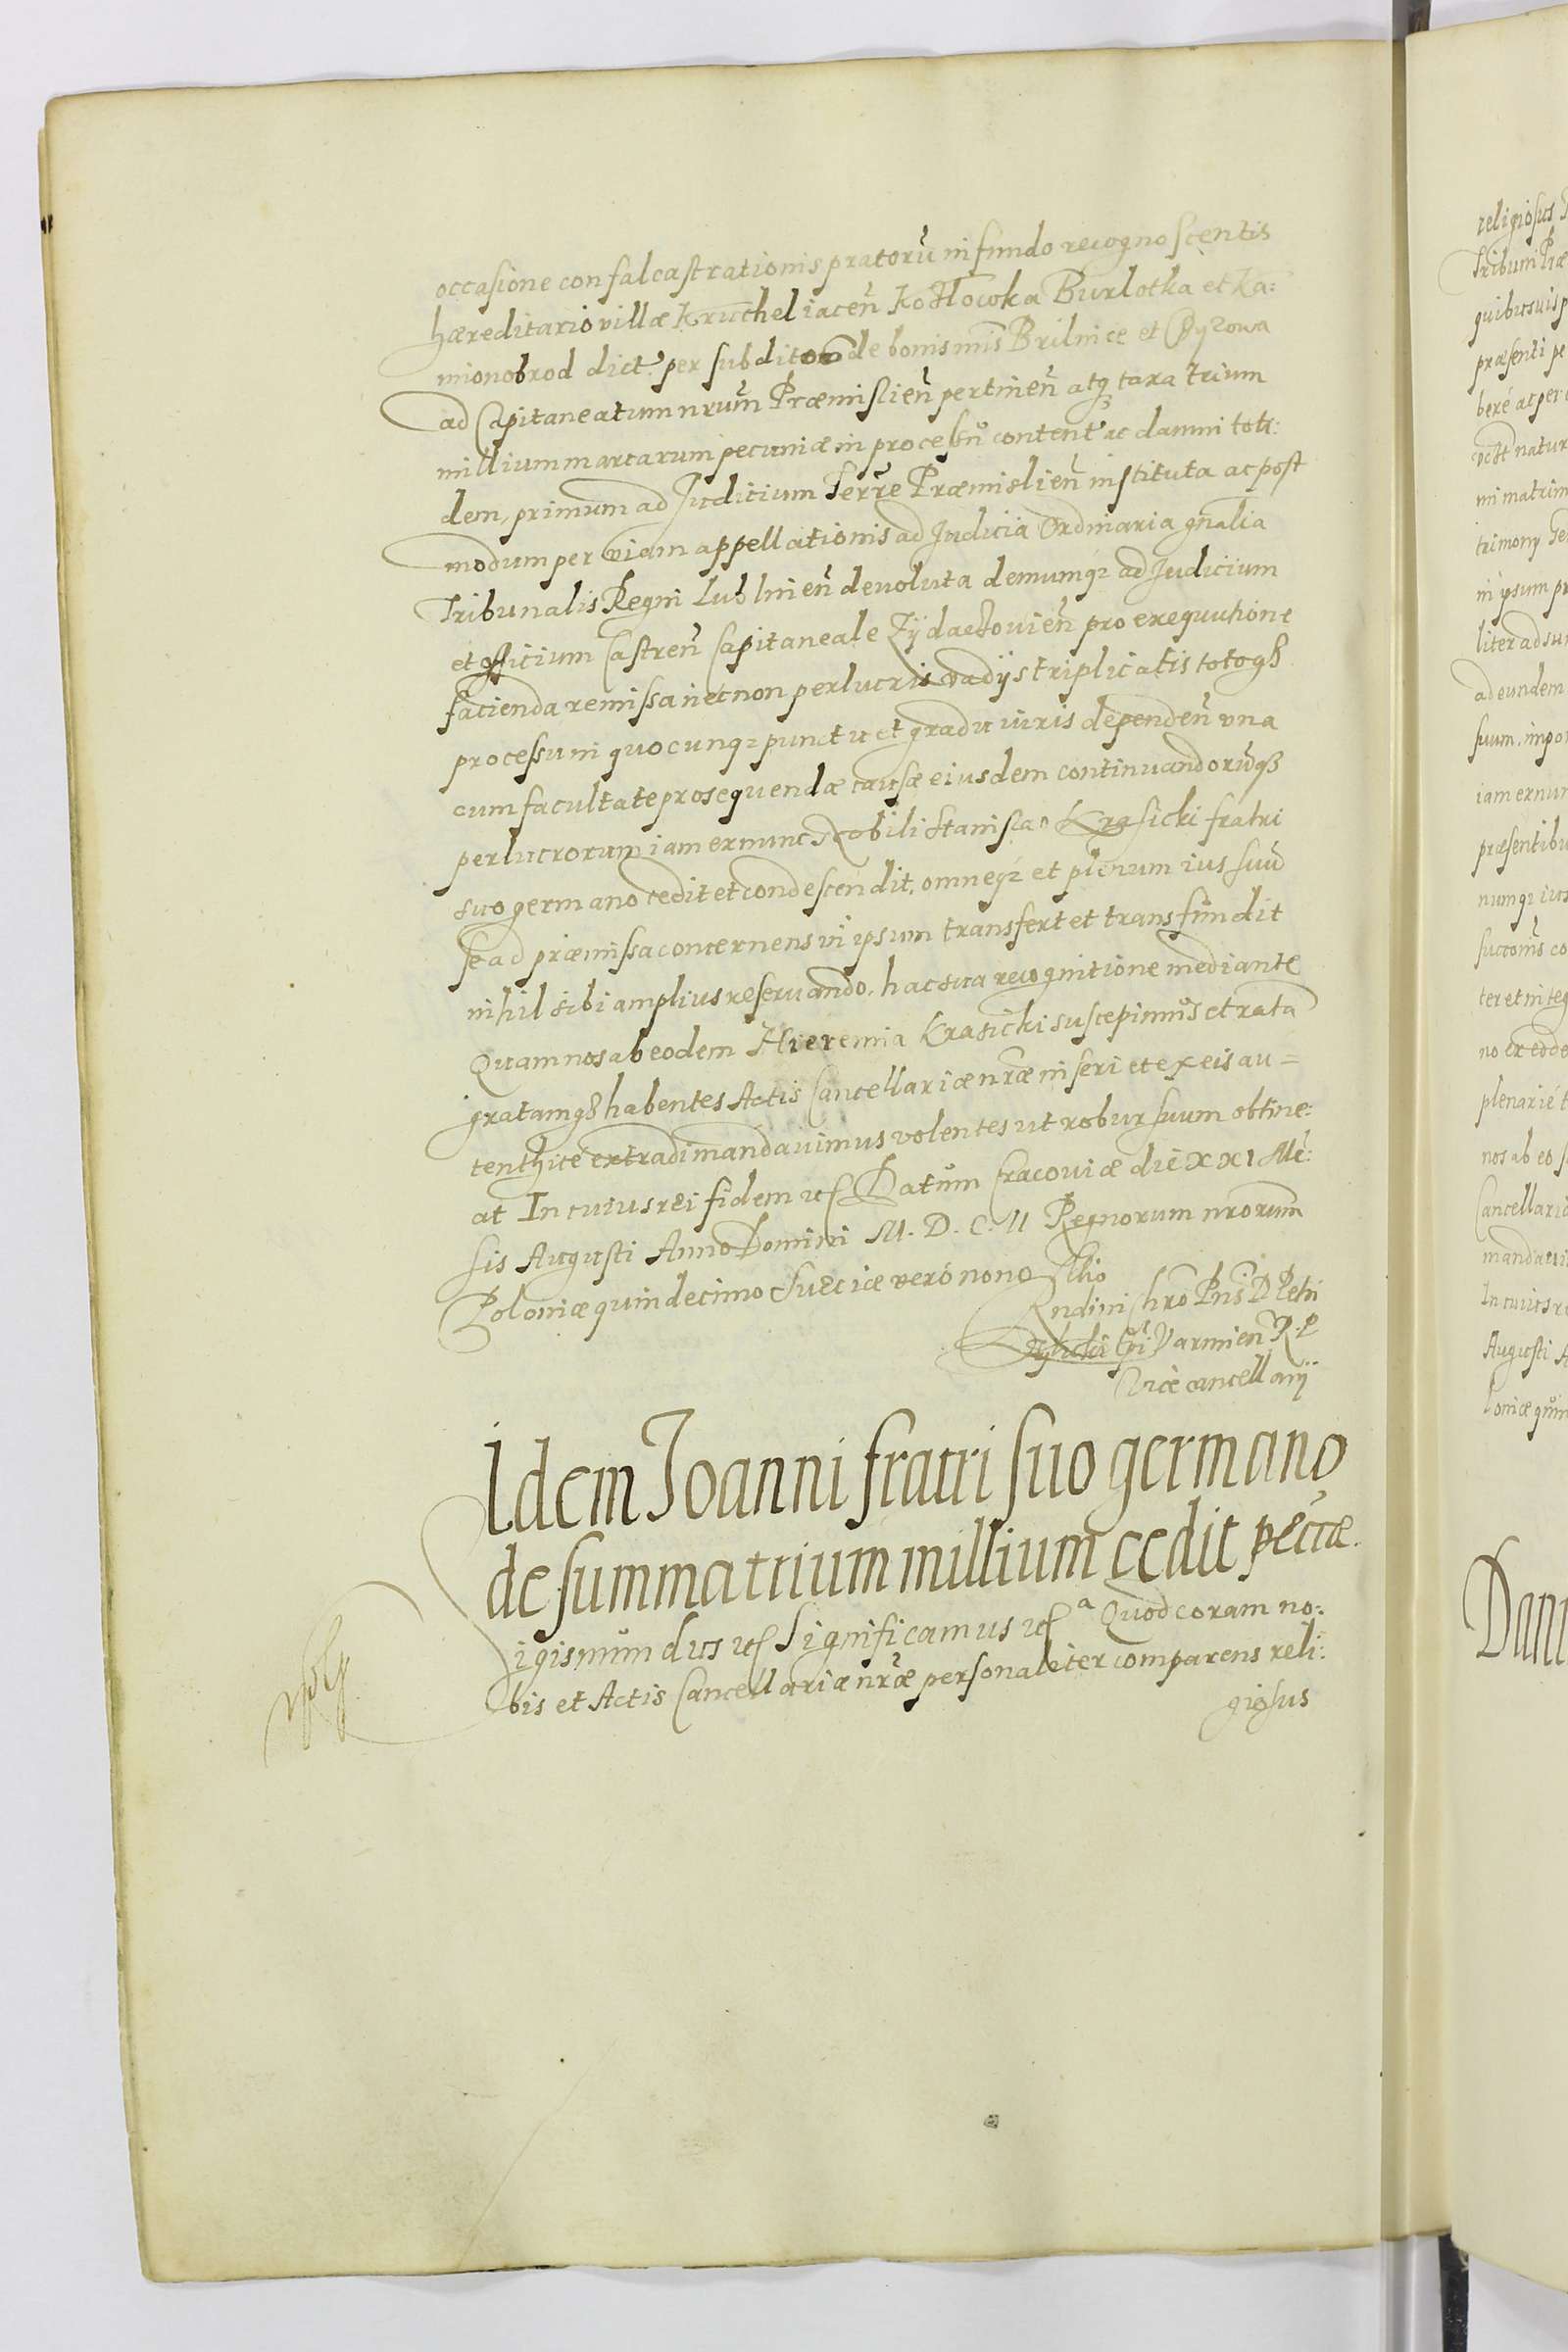 occasione confalcastrationis pratorũ in fundo recognoscentis
hæreditario villæ Kruchel iacen̄ Kotłowka Burlotka et Ka:
mionobrod dict. per subditos de bonis nr̃is Brilnice et
ad Capitaneatum nrum̃ Præmislien̄ pertinen̄ atq taxa trium
millium marcarum pecuniæ in processu content ac damni toti:
dem, primum ad Iudicium Terr̃e Præmislien̄ instituta ac post
modum per viam appellationis ad Iudicia Ordinaria gnalia
Tribunalis Regni Lublinen̄ devoluta demumq ad Iudicium
et officium Castren̄ Capitaneale Zÿdaczovien̄ pro exequutione
facienda remissa necnon perlucris vadijs triplicatis totoq
processu in quocunq punctu et gradu iuris dependen̄ vna
cum facultate prosequendæ causæ eiusdem continuandorũq
perlucrorum iam exnunc Nobili Stanislao Krasicki fratri
suo germano cedit et condescendit, omneq et plenum ius suũ
se ad præmissa concernens in ipsum transfert et transfundit
nihil sibi amplius reseruando, hac sua recognitione mediante
Quam nos ab eodem Hieremia Krasicki suscepimus et ratã
gratamq habentes Actis Cancellariæ nr̃æ inseri et ex eis au=
tenthice extradi mandavimus volentes ut robur suum obtine:
at In cuius rei fidem etc Datum Cracoviæ die XXI Mẽ:
sis Augusti Anno Domini M. D. C. II Regnorum nrorum̃
Poloniæ quindecimo Sueciæ verò nono
Rndini Chro Pris D Petri
Tylicki Epi Varmien R. P.
Vicecancellarij
Idem Joanni fratri suo germano
de summa trium millium cedit pecũæ.
Sigismundus etc Significamus etc a Quod coram no:
bis et Actis Cancellariæ nr̃æ personaliter comparens reli:
giosus
religiosus
Tribuni Præ
quibusuis p
præsenti pe
bere ac per
natur
ni matrim
trimony
in ipsum pr
liter ad su
ad eundem
suum. impor
iam exnun
præsentibu
numq ius
co
ter et integ
no
plenarie t
nos ab eo s
Cancellariæ
mandavi
In cuius re
Augusti A
loniæ quin
Dani